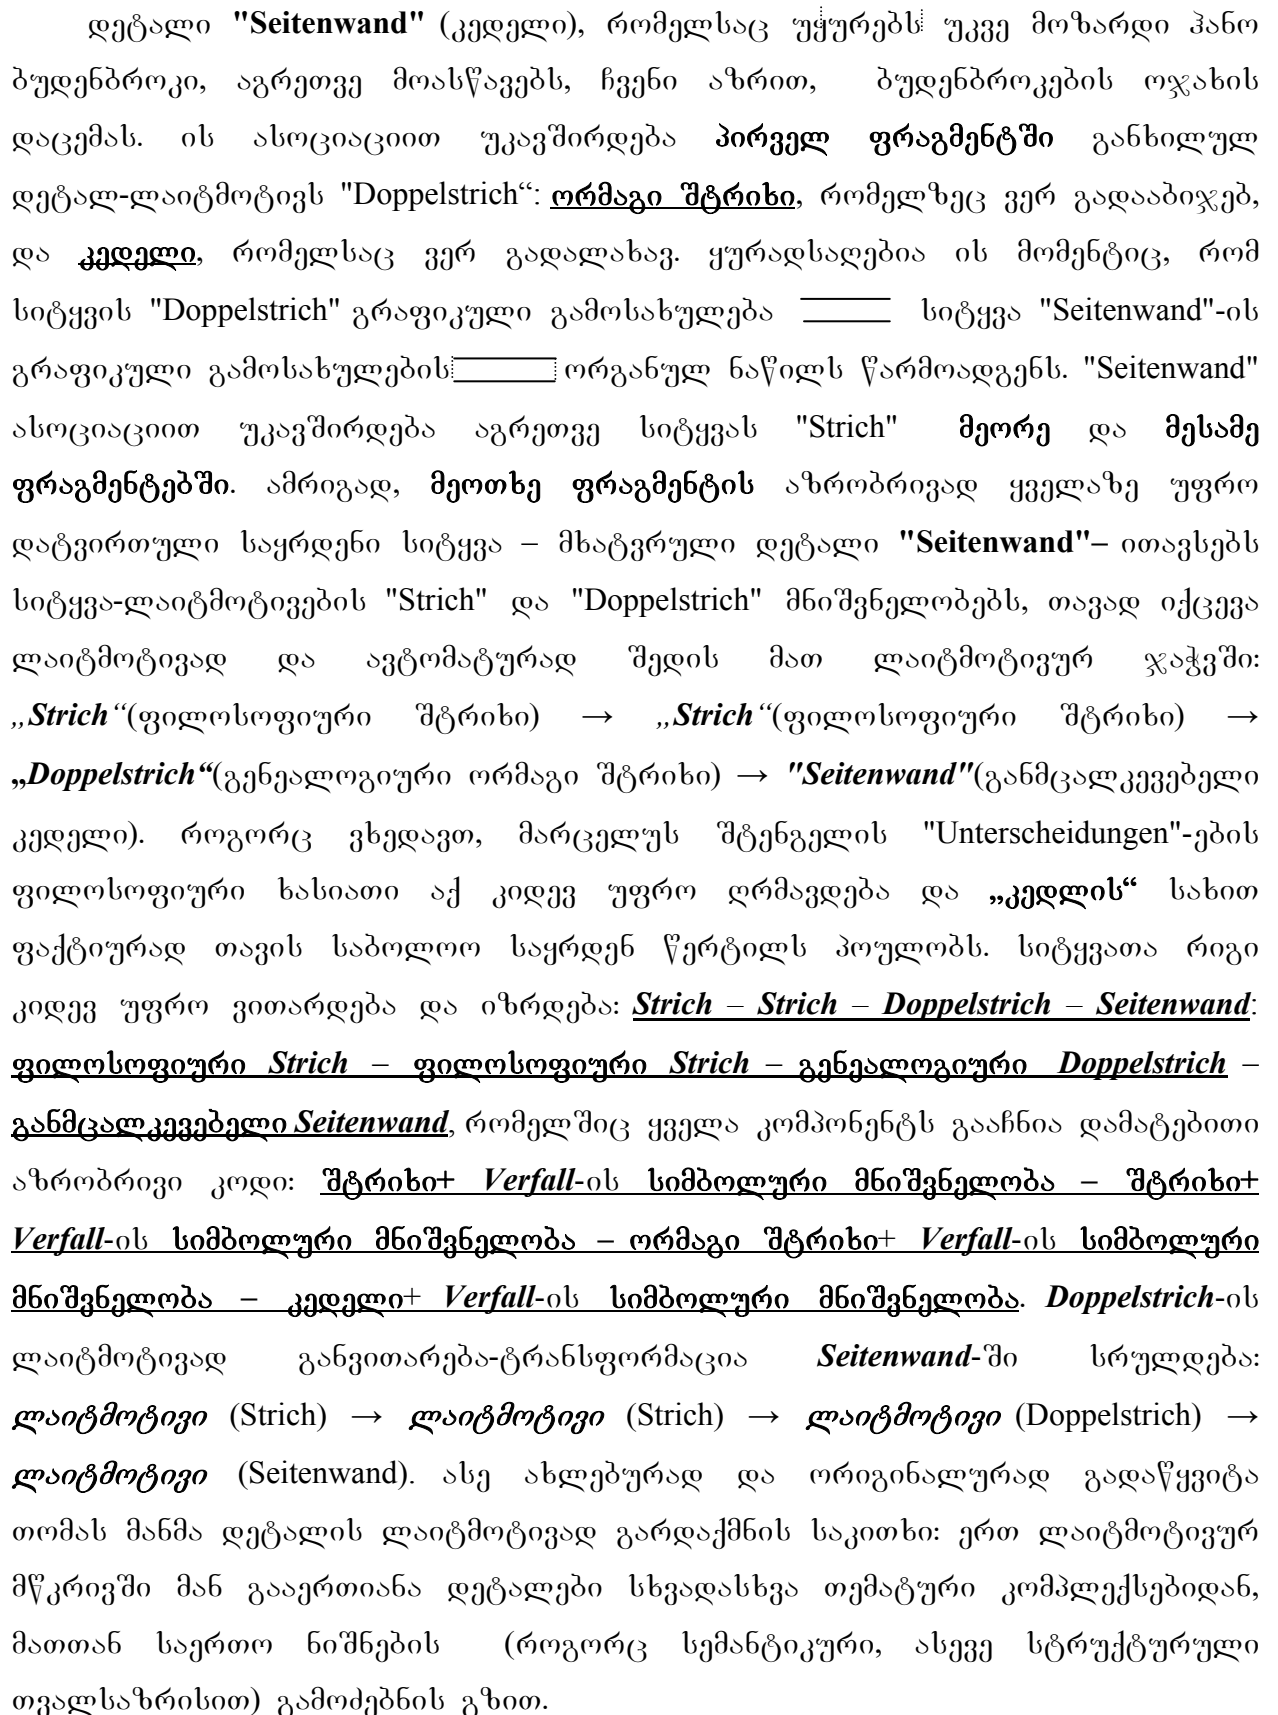 დეტალი "Seitenwand" (კედელი), რომელსაც უყურებს უკვე მოზარდი ჰანო
ბუდენბროკი, აგრეთვე მოასწავებს, ჩვენი აზრით, ბუდენბროკების ოჯახის
დაცემას. ის ასოციაციით უკავშირდება პირველ ფრაგმენტში განხილულ
დეტალ-ლაიტმოტივს "Doppelstrich“: ორმაგი შტრიხი, რომელზეც ვერ გადააბიჯებ,
და კედელი, რომელსაც ვერ გადალახავ. ყურადსაღებია ის მომენტიც, რომ
სიტყვის "Doppelstrich" გრაფიკული გამოსახულება სიტყვა "Seitenwand"-ის
გრაფიკული გამოსახულების ორგანულ ნაწილს წარმოადგენს. "Seitenwand"
ასოციაციით უკავშირდება აგრეთვე სიტყვას "Strich" მეორე და მესამე
ფრაგმენტებში. ამრიგად, მეოთხე ფრაგმენტის აზრობრივად ყველაზე უფრო
დატვირთული საყრდენი სიტყვა – მხატვრული დეტალი "Seitenwand"– ითავსებს
სიტყვა-ლაიტმოტივების "Strich" და "Doppelstrich" მნიშვნელობებს, თავად იქცევა
ლაიტმოტივად და ავტომატურად შედის მათ ლაიტმოტივურ ჯაჭვში:
„Strich“(ფილოსოფიური შტრიხი) → „Strich“(ფილოსოფიური შტრიხი) →
„Doppelstrich“(გენეალოგიური ორმაგი შტრიხი) → "Seitenwand"(განმცალკევებელი
კედელი). როგორც ვხედავთ, მარცელუს შტენგელის "Unterscheidungen"-ების
ფილოსოფიური ხასიათი აქ კიდევ უფრო ღრმავდება და „კედლის“ სახით
ფაქტიურად თავის საბოლოო საყრდენ წერტილს პოულობს. სიტყვათა რიგი
კიდევ უფრო ვითარდება და იზრდება: Strich – Strich – Doppelstrich – Seitenwand:
ფილოსოფიური Strich – ფილოსოფიური Strich – გენეალოგიური Doppelstrich –
განმცალკევებელი Seitenwand, რომელშიც ყველა კომპონენტს გააჩნია დამატებითი
აზრობრივი კოდი: შტრიხი+ Verfall-ის სიმბოლური მნიშვნელობა – შტრიხი+
Verfall-ის სიმბოლური მნიშვნელობა – ორმაგი შტრიხი+ Verfall-ის სიმბოლური
მნიშვნელობა – კედელი+ Verfall-ის სიმბოლური მნიშვნელობა. Doppelstrich-ის
ლაიტმოტივად განვითარება-ტრანსფორმაცია Seitenwand-ში სრულდება:
ლაიტმოტივი (Strich) → ლაიტმოტივი (Strich) → ლაიტმოტივი (Doppelstrich) →
ლაიტმოტივი (Seitenwand). ასე ახლებურად და ორიგინალურად გადაწყვიტა
თომას მანმა დეტალის ლაიტმოტივად გარდაქმნის საკითხი: ერთ ლაიტმოტივურ
მწკრივში მან გააერთიანა დეტალები სხვადასხვა თემატური კომპლექსებიდან,
მათთან საერთო ნიშნების (როგორც სემანტიკური, ასევე სტრუქტურული
თვალსაზრისით) გამოძებნის გზით.